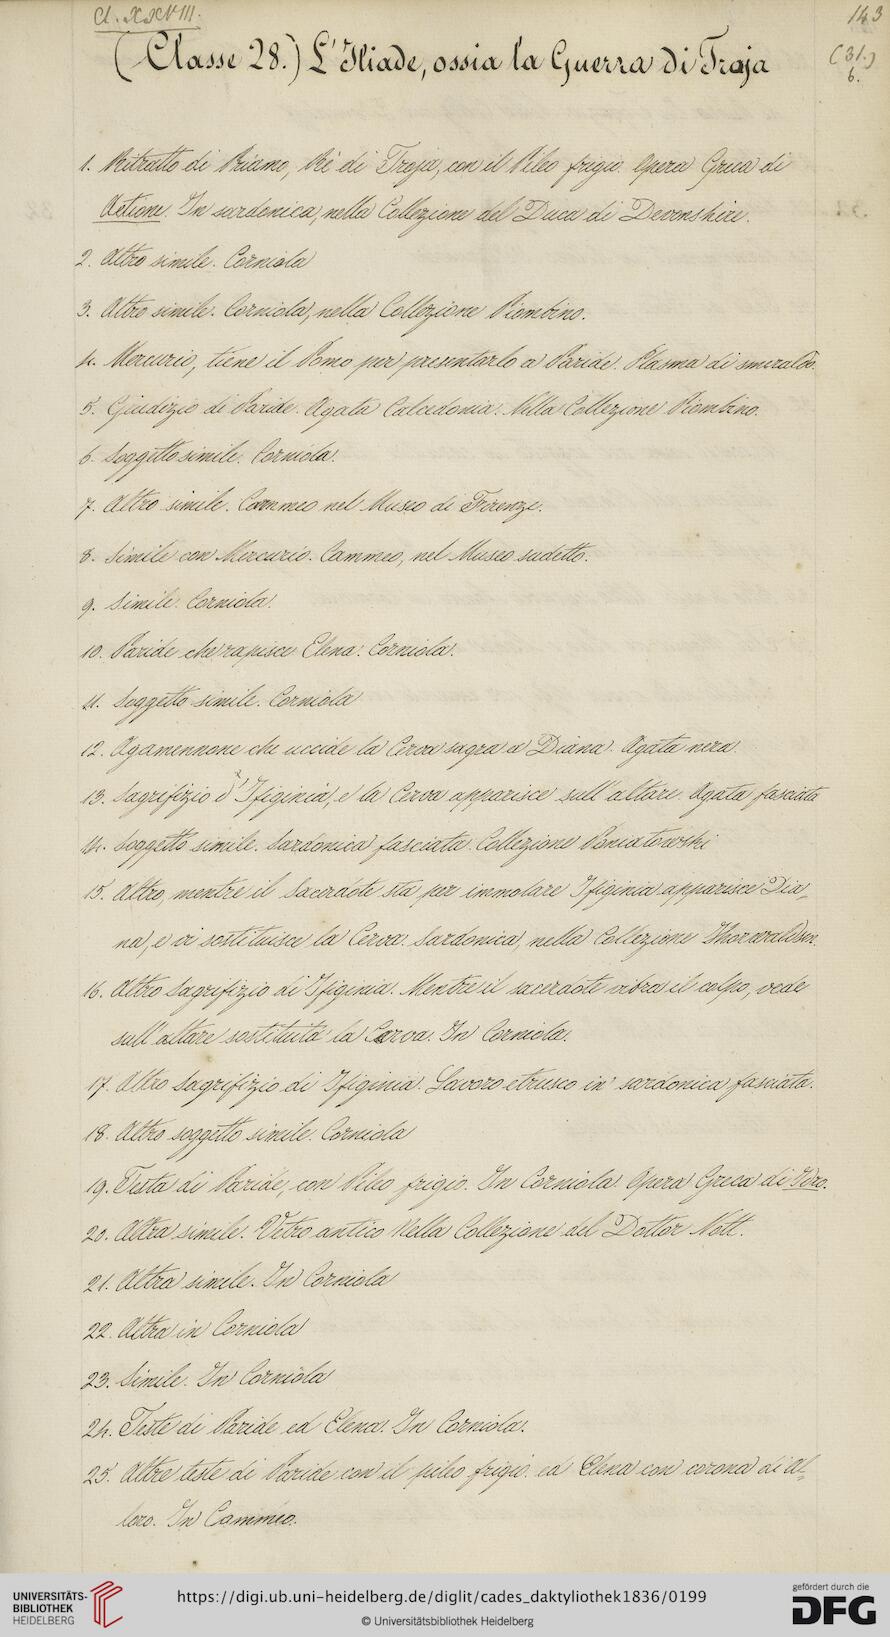 Cl. XXVIII.
143
(Classe 28.) L'Iliade, ossia la Guerra di Troja
(31.)
6.
1. Ritratto di Priamo, Rè di Troja, con il Pileo frigio. Opera Greca di
Aetione. In sardonica, nella Collezione del Duca di Devonshire.
2. Altro simile. Corniola
3. Altro simile. Corniola, nella Collezione Piombino.
4. Mercurio, tiene il Pomo per presentarlo a Paride. Plasma di smeraldo.
5. Giudizio di Paride. Agata Calcedonia. Nella Collezione Piombino.
6. Soggetto simile. Corniola.
7. Altro simile. Cammeo nel Museo di Firenze.
8. Simile con Mercurio. Cammeo, nel Museo sudetto.
9. Simile. Corniola.
10. Paride che rapisce Elena. Corniola.
11. Soggetto simile. Corniola
12. Agamennone che uccide la Cerva sagra a Diana. Agata nera.
13. Sagrifizio d'Ifiginia, e la Cerva apparisce sull'altare. Agata fasciata
14. Soggetto simile. Sardonica fasciata. Collezione Poniatowski
15. Altro, mentre il Sacerdote sta per immolare Ifiginia apparisce Dia-
na, e vi sostituisce la Cerva. Sardonica, nella Collezione Thorwaldsen.
16. Altro Sagrifizio di Ifiginia. Mentre il sacerdote vibra il colpo, vede
sull'altare sostituita la Cerva. In Corniola.
17. Altro Sagrifizio di Ifiginia. Lavoro etrusco in sardonica fasciata.
18. Altro soggetto simile. Corniola
19. Testa di Paride, con Pileo frigio. In Corniola. Opera Greca di
20. Altra simile. Vetro antico Nella Collezione del Dottor Nott.
21. Altra simile. In Corniola
22. Altra in Corniola
23. Simile. In Corniola
24. Teste di Paride ed Elena. In Corniola.
25. Altre teste di Paride con il pileo frigio. ed Elena con corona di al-
loro. In Cammeo.
UNIVERSITÄTS-
BIBLIOTHEK
HEIDELBERG
https://digi.ub.uni-heidelberg.de/diglit/cades_daktyliothek1836/0199
© Universitätsbibliothek Heidelberg
gefördert durch die
DFG